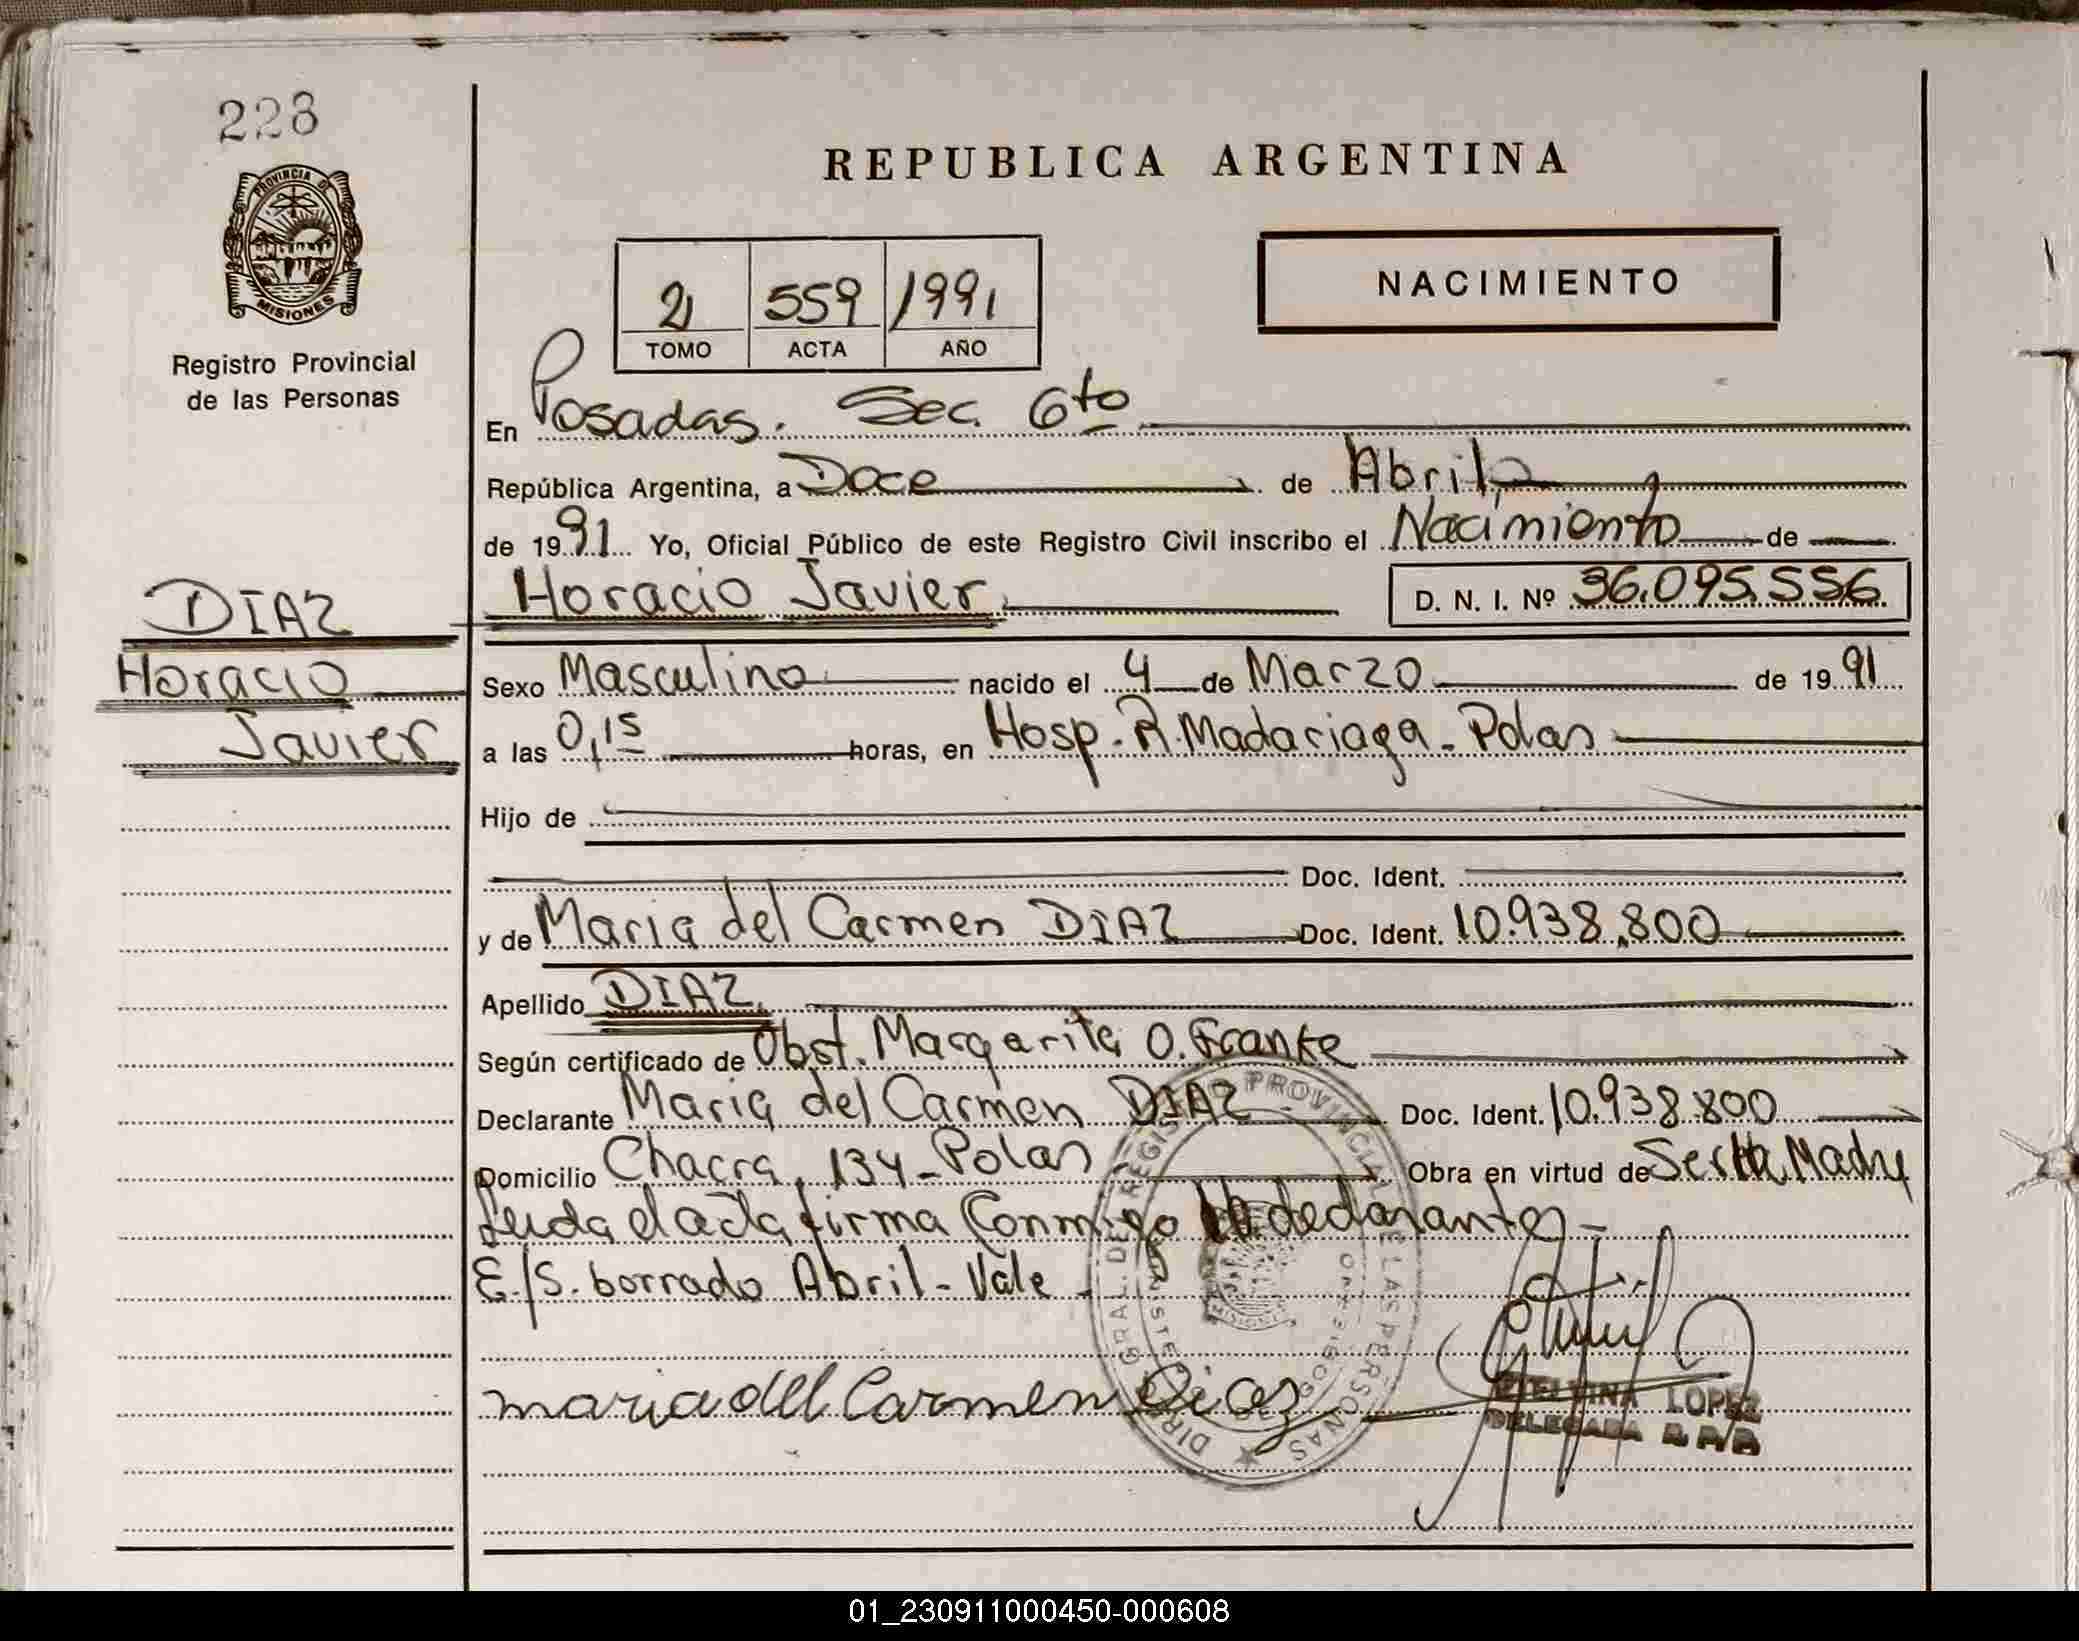 228
PROVINCIA DE
MISIONES
Registro Provincial
de las Personas
REPUBLICA ARGENTINA
NACIMIENTO
2 559 1991
TOMO ACTA AÑO
En Posadas. Sec. 6to
República Argentina, a Doce de Abril
de 1991 Yo, Oficial Público de este Registro Civil inscribo el Nacimiento de
Horacio Javier D. N. I. Nº 36.095.556
DIAZ
Horacio
Javier
Sexo Masculino nacido el 4 de Marzo de 1991
a las 0,15 horas, en Hosp. R. Madariaga - Pdas
Hijo de
Doc. Ident.
y de Maria del Carmen DIAZ Doc. Ident. 10.938.800
Apellido DIAZ
Según certificado de Obst. Margarita O. Franke
Declarante Maria del Carmen DIAZ Doc. Ident. 10.938.800
Domicilio Chacra 134 - Pdas Obra en virtud de Ser la Madre
Leida el acta firma Conmigo la declarante -
E/S. borrado Abril - Vale -
maria del Carmen Diaz
LOPEZ
DELEGADA R.P.P.
DIR. GRAL. DE REGISTRO PROVINCIAL DE LAS PERSONAS
01_230911000450-000608